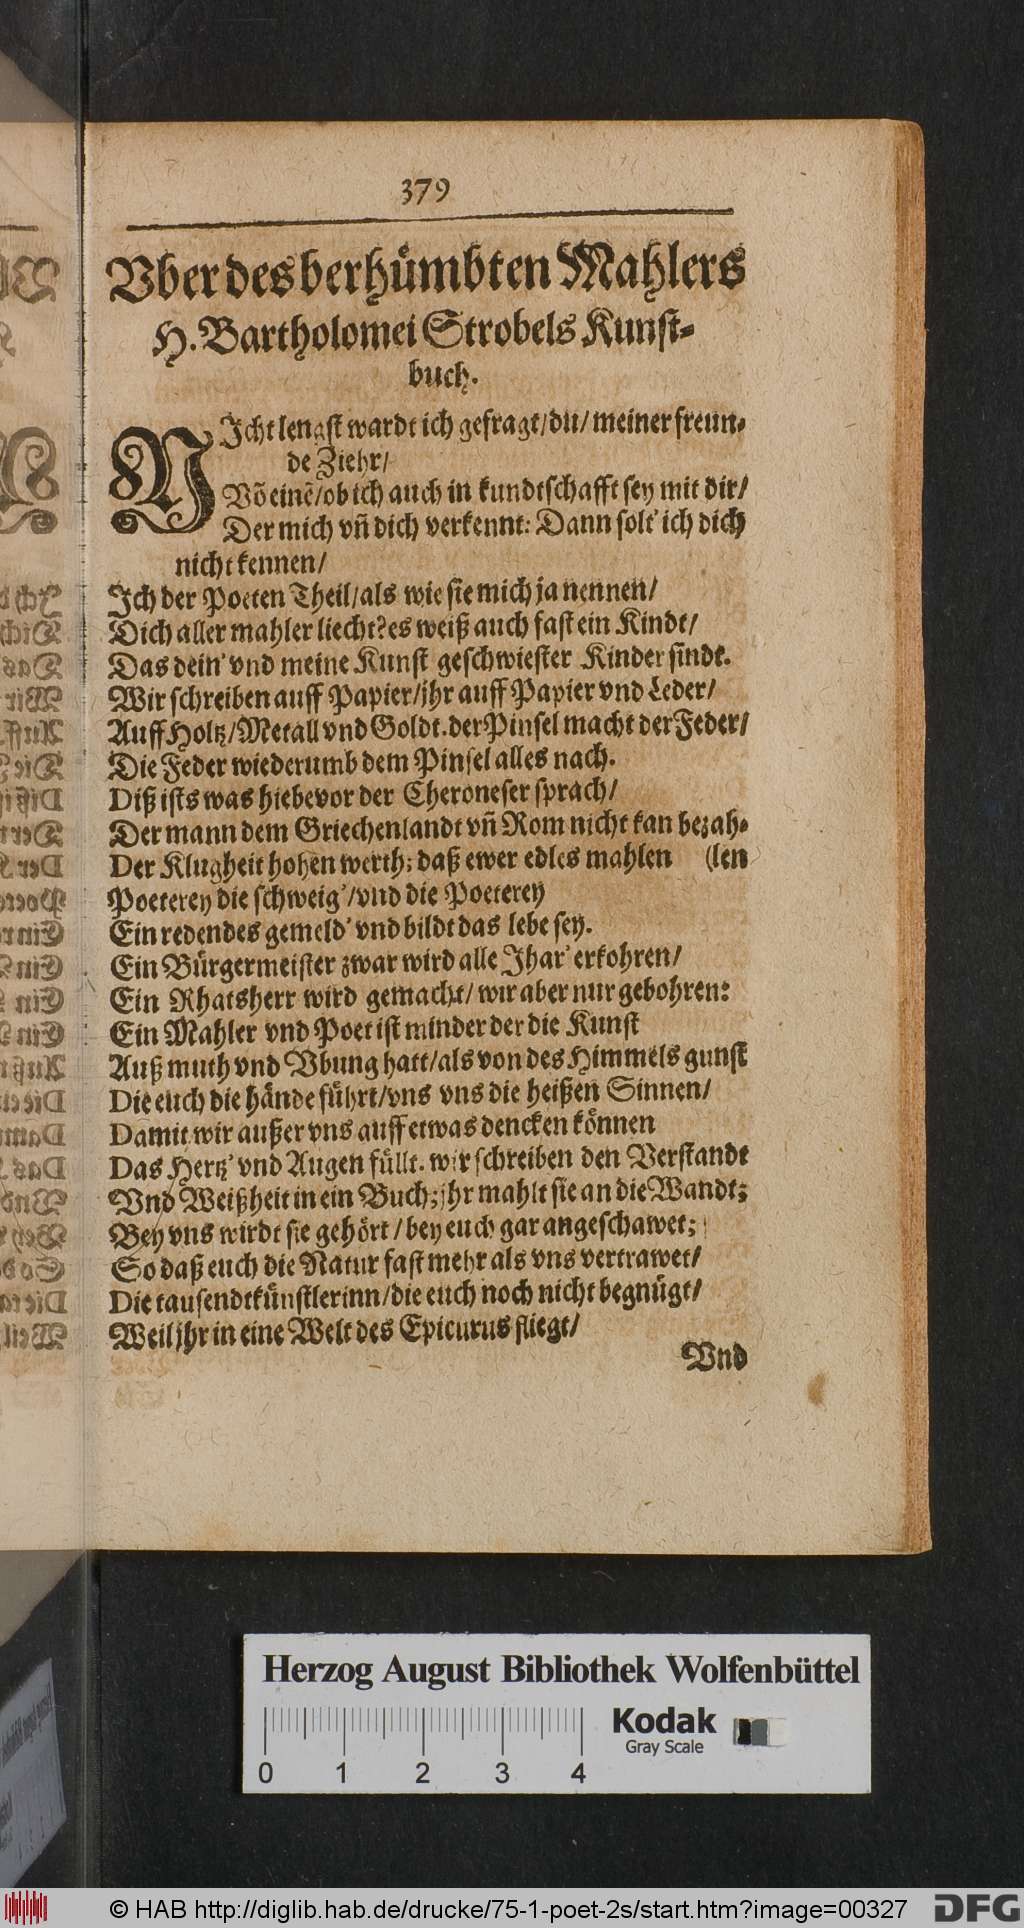 379
Vber des berhümbten Mahlers
H. Bartholomei Strobels Kunst-
buch.
NIcht lengst wardt ich gefragt/du/ meiner freun-
de Ziehr/
Võ einẽ/ob ich auch in kundtschafft sey mit dir/
Der mich vñ dich verkennt: Dann solt' ich dich
nicht kennen/
Ich der Poeten Theil/als wie sie mich ja nennen/
Dich aller mahler liecht? es weiß auch fast ein Kindt/
Das dein' vnd meine Kunst geschwiester Kinder sindt.
Wir schreiben auff Papier/jhr auff Papier vnd Leder/
Auff Holtz/Metall vnd Goldt. der Pinsel macht der Feder/
Die Feder wiederumb dem Pinsel alles nach.
Diß ists was hiebevor der Cheroneser sprach/
Der mann dem Griechenlandt vñ Rom nicht kan bezah-
Der Klugheit hohen werth; daß ewer edles mahlen (len
Poeterey die schweig'/vnd die Poeterey
Ein redendes gemeld' vnd bildt das lebe sey.
Ein Bürgermeister zwar wird alle Jhar' erkohren/
Ein Rhatsherr wird gemacht/ wir aber nur gebohren:
Ein Mahler vnd Poet ist minder der die Kunst
Auß muth vnd Vbung hatt/als von des Himmels gunst
Die euch die hände führt/vns vns die heißen Sinnen/
Damit wir außer vns auff etwas dencken können
Das Hertz' vnd Augen füllt. wir schreiben den Verstandt
Vnd Weißheit in ein Buch; jhr mahlt sie an die Wandt;
Bey vns wirdt sie gehört/bey euch gar angeschawet;
So daß euch die Natur fast mehr als vns vertrawet/
Die tausendtkünstlerinn/die euch noch nicht begnügt/
Weil jhr in eine Welt des Epicurus fliegt/
Vnd
Herzog August Bibliothek Wolfenbüttel
Kodak
Gray Scale
0 1 2 3 4
© HAB http://diglib.hab.de/drucke/75-1-poet-2s/start.htm?image=00327
DFG